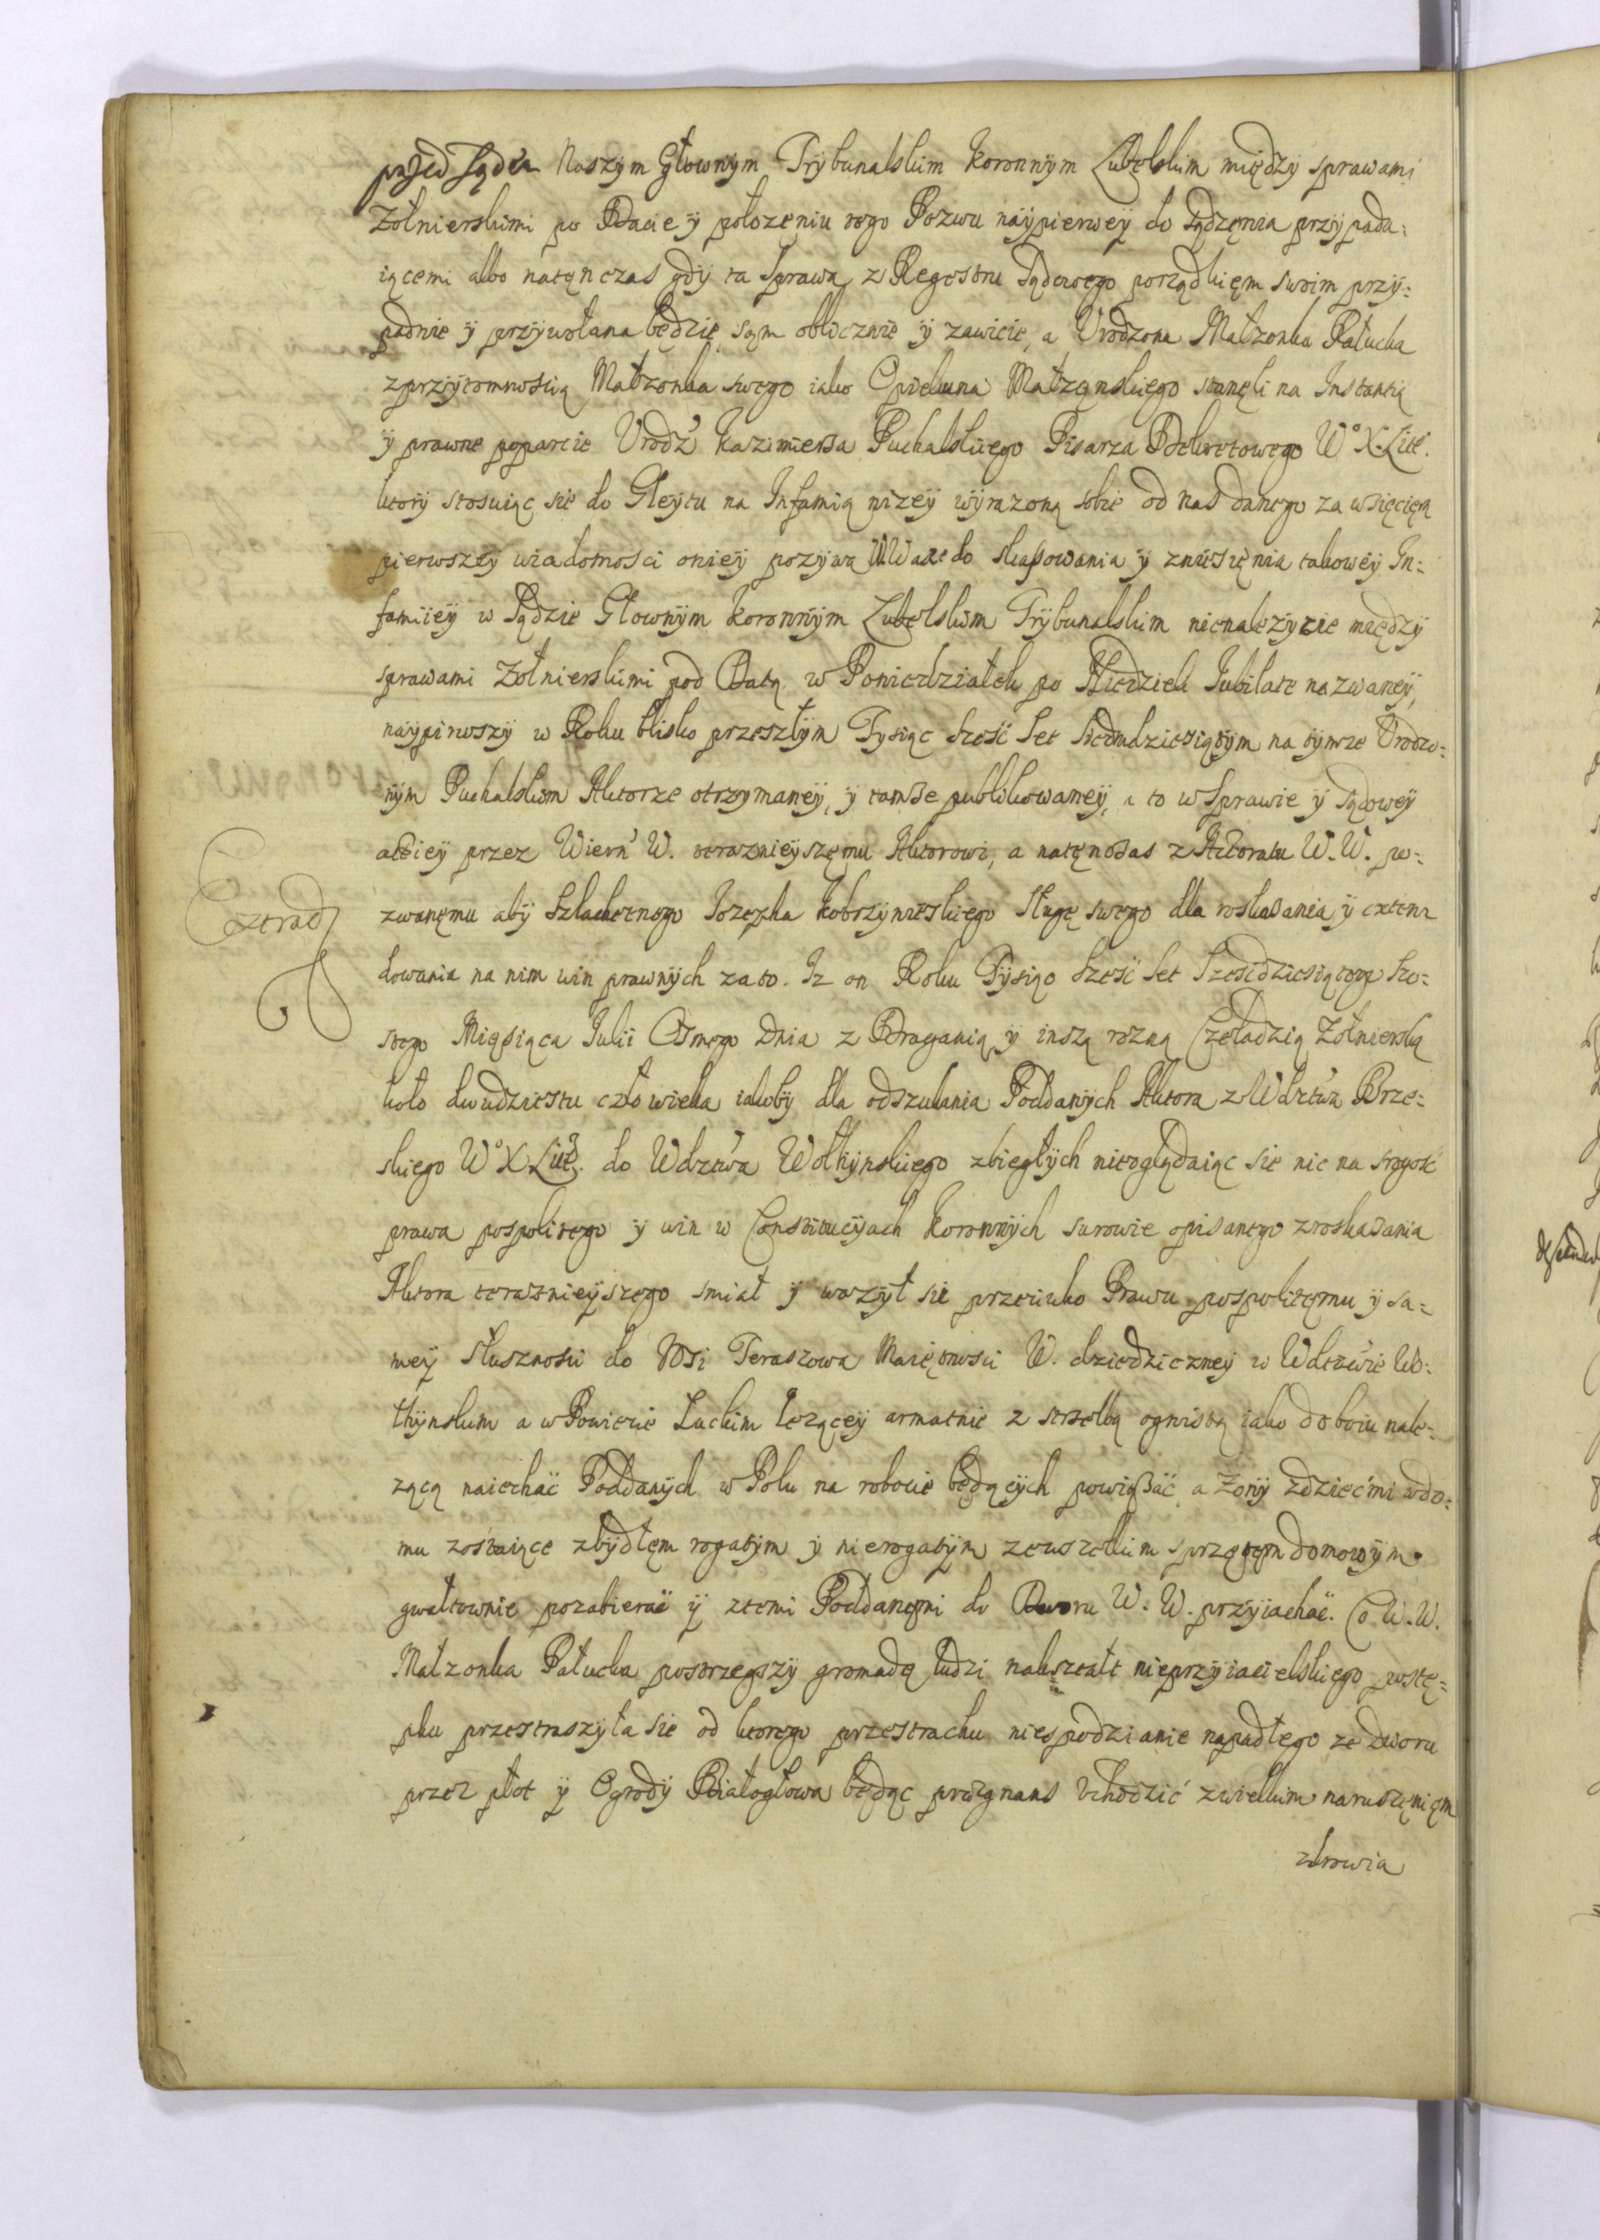 przed Sądem Naszym Głownym Trybunalskim Koronnym Lubelskim między sprawami
Zołnierskimi po Dacie ÿ położeniu tego Pozwu naÿpierweÿ do sądzęnia przÿpada:
iącemi albo natęnczas gdÿ ta Sprawa z Regestru Sądowego porządkięm swoim przÿ:
padnie ÿ przÿwołana będzie sąm oblicznie ÿ zawicie, a Urodzona Małzonka Pałucka
z przÿtomnoscią Małzonka swego iako Opiekuna Małzęnskiego stanęli na Instantią
ÿ prawne poparcie Urodź Kazimierza Puchalskiego Pisarza Dekretowego W° X Litt.
ktorÿ stosuiąc sie do Gleÿtu na Infamią nizeÿ wÿrazoną sobie od nas danego za wzięcięm
pierwszeÿ wiadomosci onieÿ pozÿwa do skassowania ÿ zniesięnia takoweÿ In:
famiieÿ w Sądzie Głownÿm Koronnÿm Lubelskim Trÿbunalskim nienalezÿcie międzÿ
sprawami Zołnierskimi pod Datą w Poniedziałek po Niedzieli Jubilate nazwaneÿ,
naÿpirwszÿ w Roku blisko przeszłÿm Tysiąc szesć set siedmdziesiątÿm na tÿmze Urodzo:
nÿm Puchalskim Aktorze otrzymaneÿ, ÿ tamze publikowaneÿ, a to w Sprawie ÿ sądoweÿ
actieÿ przez Wiern' W. teraznieÿszęmu Aktorowi, a natęnczas z Aktoratu W. W. po:
zwanęmu abÿ Szlachetnego Jozepha Kobrzÿnieskiego Sługę swego dla roskazania ÿ exten
Czeladz
dowania na nim win prawnÿch za to. Iz on Roku Tÿsiąc szesć set szescdziesiątego szo:
stego Miesiąca Julii Osmego Dnia z Draganią ÿ inszą rozną Czeladzią Zołnierską
koło dwudziestu człowieka iakobÿ dla odszukania Poddanÿch Aktora z Wdztwa Brze:
skiego W° X Litt. do Wdztwa Wołhÿnskiego zbiegłÿch nieoglądaiąc sie nic na srogosć
prawa pospolitego ÿ win w Constitucÿach Koronnÿch surowie opisanego z roskazania
Aktora teraznieÿszego smiał ÿ wazÿł sie przeciwko Prawu pospolitęmu ÿ sa:
meÿ słusznosci do Wsi Teraszowa Maiętnosci W. dziedziczneÿ w Wdztwie Wo:
łhÿnskim a w Powiecie Łuckim lezącеÿ armatnie z strzelbą ognistą iako do boiu nale:
zącą naiechać Poddanÿch w Polu na robocie będącÿch powiązać a zonÿ z dziećmi w do:
mu zostaiące z bÿdłęm rogatÿm ÿ nierogatÿm ze wszelkim sprzętęm domowÿm
gwałtownie pozabierać ÿ z temi Poddanęmi do Dworu W. W. przÿiachać. Co W. W.
Małzonka Pałucka postrzegszÿ gromadę ludzi nakształt nieprzÿiacielskiego postę:
pku przestraszÿła sie od ktorego przestrachu niespodzianie napadłego ze dworu
przez płot ÿ Ogrodÿ Białogłowa będąc praegnans Uchodzić z wielkim naruszęnięm
zdrowia